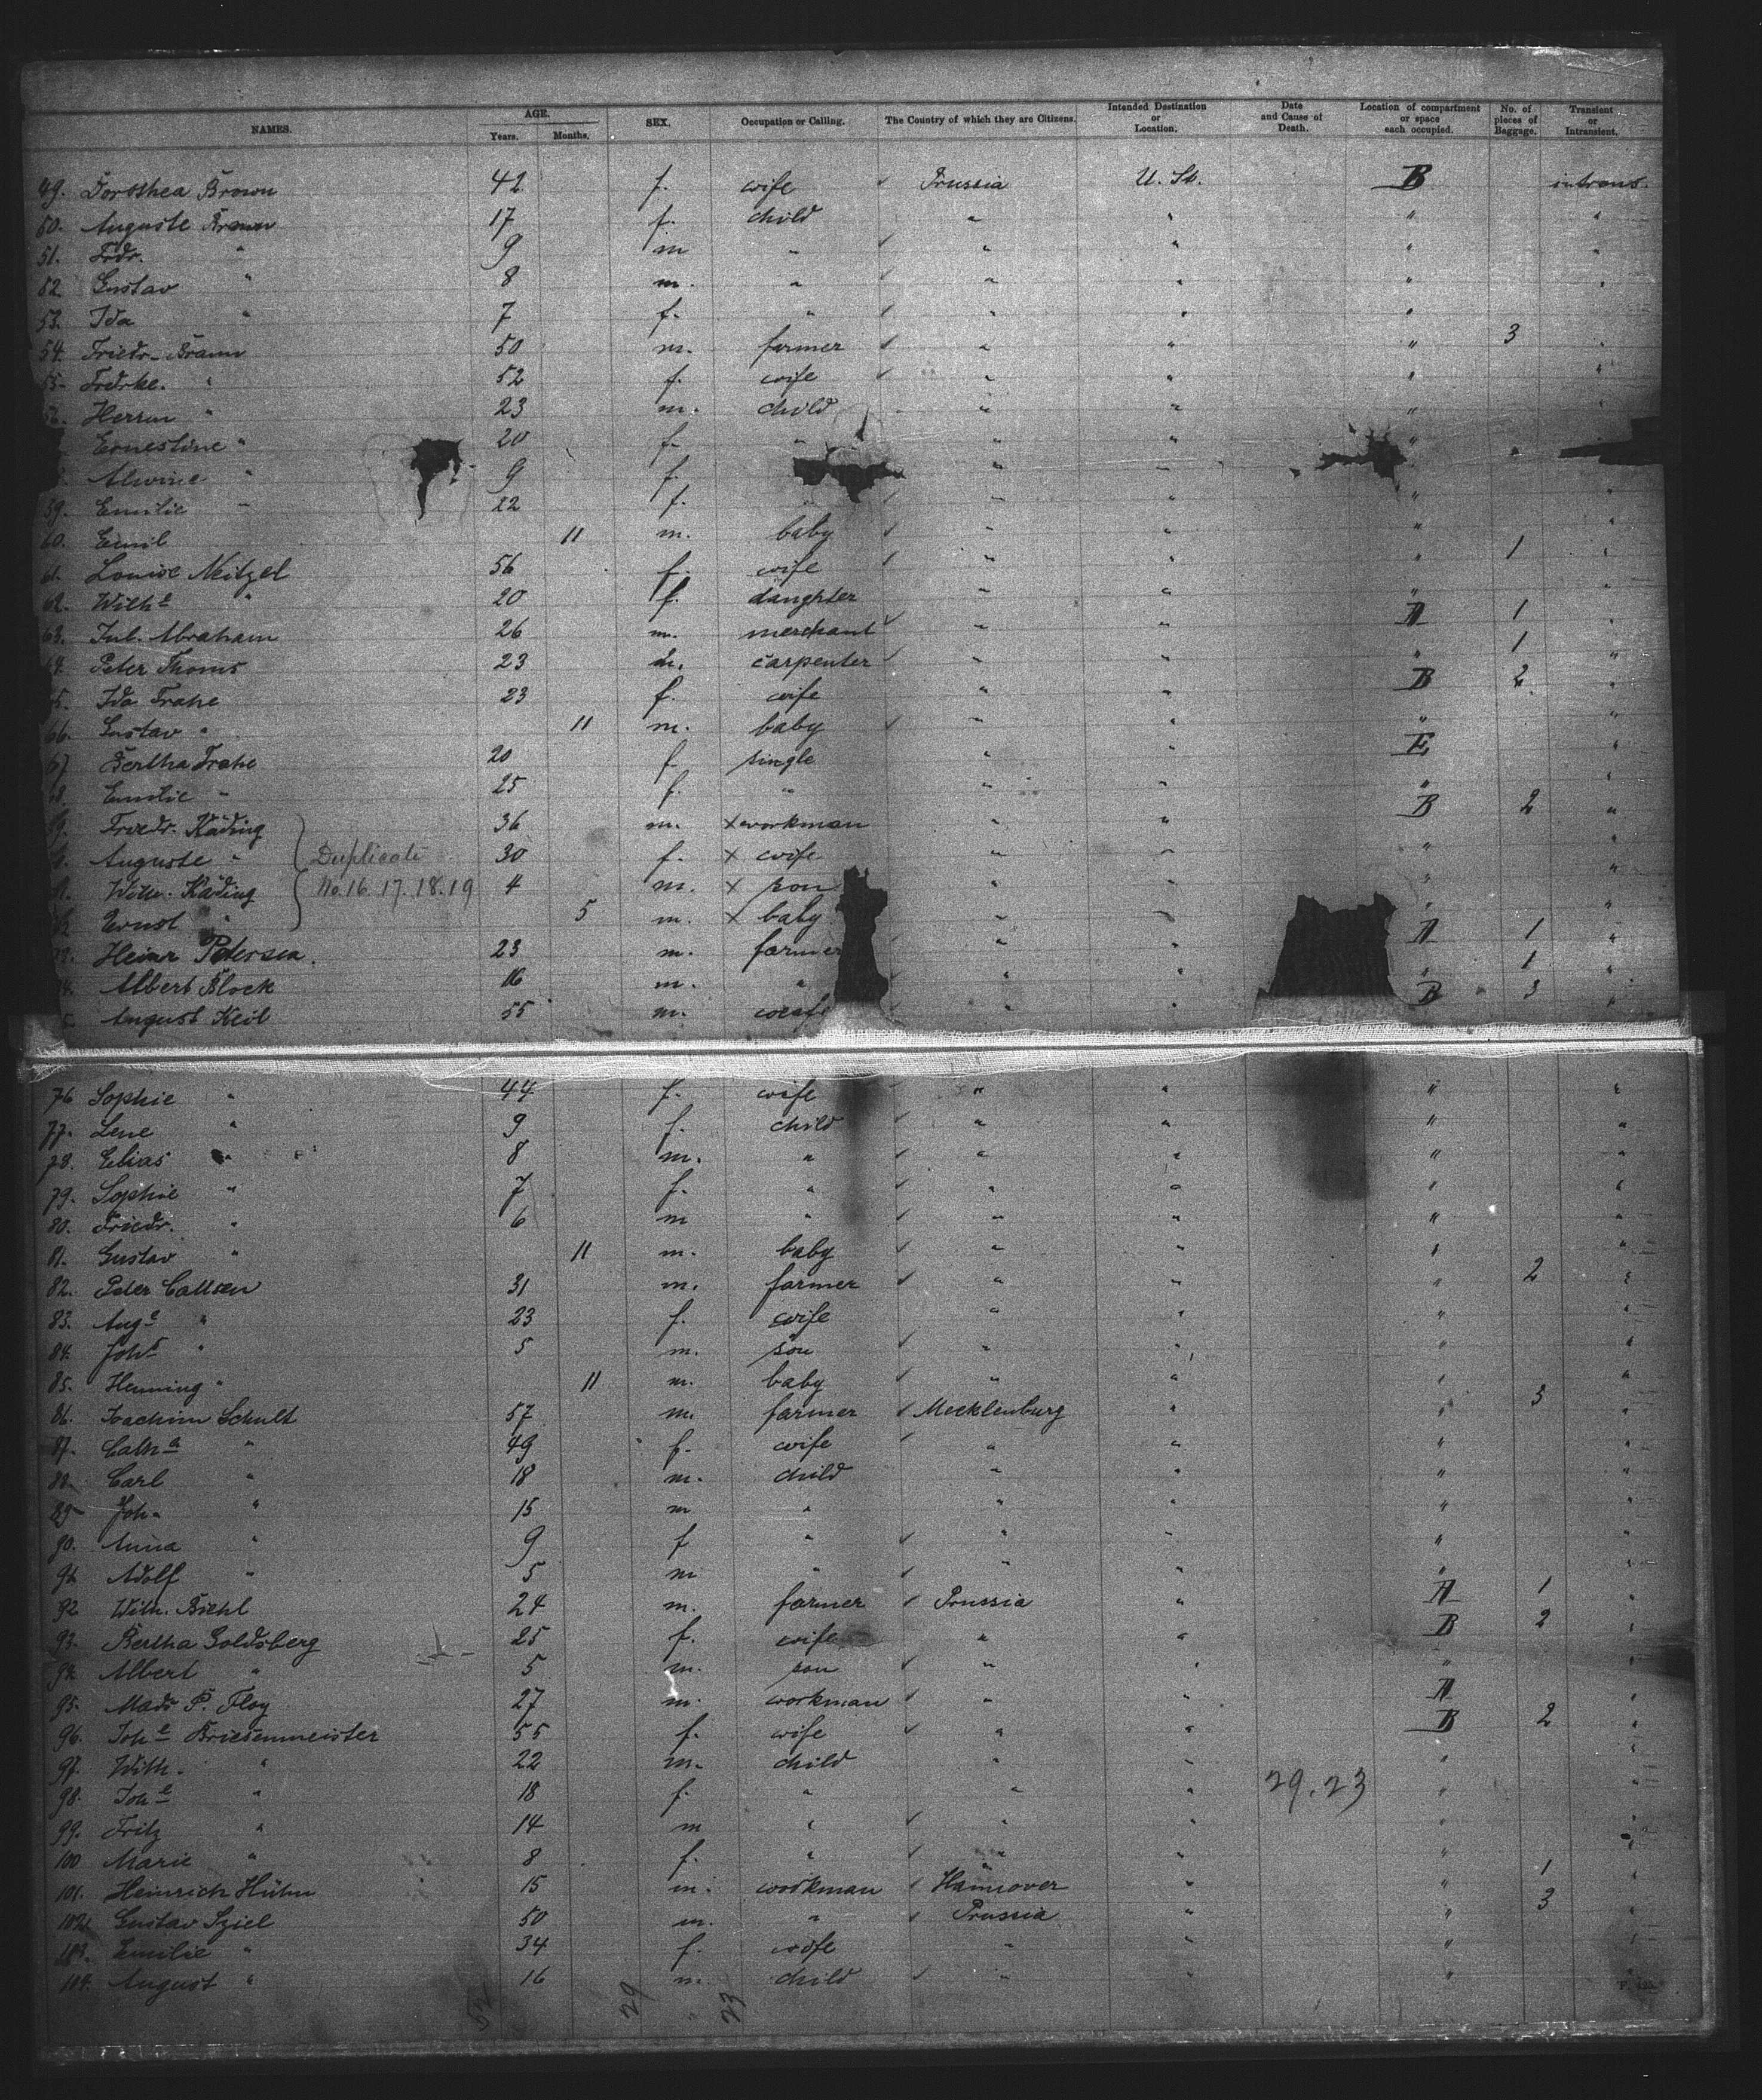 NAMES. AGE. Years. Months. SEX. Occupation or Calling. The Country of which they are Citizens. Intended Destination or Location. Date and Cause of Death. Location of compartment or space each occupied. No. of pieces of Baggage. Transient or Intransient.
49. Dorothea Brown 42 f. wife ✓ Prussia U. St. B intrans.
50. Auguste Braun 17 f. child " " " "
51. Frdr. " 9 m " ✓ " " " "
52. Gustav " 8 m. " ✓ " " " "
53. Ida " 7 f. " ✓ " " "
54. Friedr. Braun 50 m. farmer ✓ " " " 3 "
55. Frdrke. " 52 f. wife ✓ " " " "
56. Herrm " 23 m. child " " " "
Ernestine " 20 f. " " " "
Alwine " 9 f. " " "
59. Emilie " 22 f. " ✓ " " " "
60. Emil 11 m. baby ✓ " " " "
61. Louise Neitzel 56 f. wife ✓ " " " 1 "
62. Wilhe " 20 f. daughter " " " "
63. Jul. Abraham 26 m. merchant ✓ " " A 1 "
64. Peter Thoms 23 m. carpenter ✓ " " " 1 "
65. Ida Trahe 23 f. wife " " B 2 "
66. Gustav " 11 m. baby ✓ " " " "
67 Bertha Trahe 20 f single " " E "
68. Emilie " 25 f. " " " " "
Friedr. Käding 36 m. x workman " " B 2 "
Auguste " Duplicate 30 f. x wife " " " "
Wilh. Käding No. 16. 17. 18. 19 4 m. x son " " " "
Ernst " 5 m. x baby " " " "
Heinr Petersen. 23 m. farmer " " A 1 "
Albert Block 16 m. " " " " 1 "
August Keil 55 m. " " B 3 "
76 Sophie " 44 f. wife ✓ " " " "
77. Lene " 9 f. child ✓ " " " "
78. Elias " 8 m. " ✓ " " " "
79. Sophie " 7 f. " ✓ " " " "
80. Friedr. " 6 m " ✓ " " " "
81. Gustav " 11 m. baby ✓ " " " "
82. Peter Callsen 31 m. farmer ✓ " " " 2 "
83. Auge " 23 f. wife " " " "
84. Johs " 5 m. son ✓ " " " "
85. Henning " 11 m. baby ✓ " " " "
86. Joachim Schult 57 m. farmer ✓ Mecklenburg " " 3 "
87. Catha " 49 f. wife ✓ " " " "
88. Carl " 18 m. child " " " "
89 Joh. " 15 m " " " " "
90. Anna " 9 f " ✓ " " " "
91 Adolf " 5 m " ✓ " " " "
92 Wilh. Biehl 24 m. farmer ✓ Prussia " A 1 "
93. Bertha Goldsberg 25 f. wife " " B 2 "
94. Albert " 5 m. son ✓ " " " "
95. Mads P. Floy 27 m. workman ✓ " " A "
96. Johe Briesenmeister 55 f. wife ✓ " " B 2 "
97. Wilh. " 22 m. child " " " "
98. Johe " 18 f. " " " 29.23 " "
99. Fritz " 14 m " ✓ " " " "
100 Marie " 8 f. " ✓ " " " "
101. Heinrich Hühn 15 m. workman ✓ Hannover " " 1 "
102. Gustav Sziel 50 m. " ✓ Prussia " " 3 "
103. Emilie " 34 f. wife " " " "
104. August " 16 m. child ✓ " " "
52 29 23